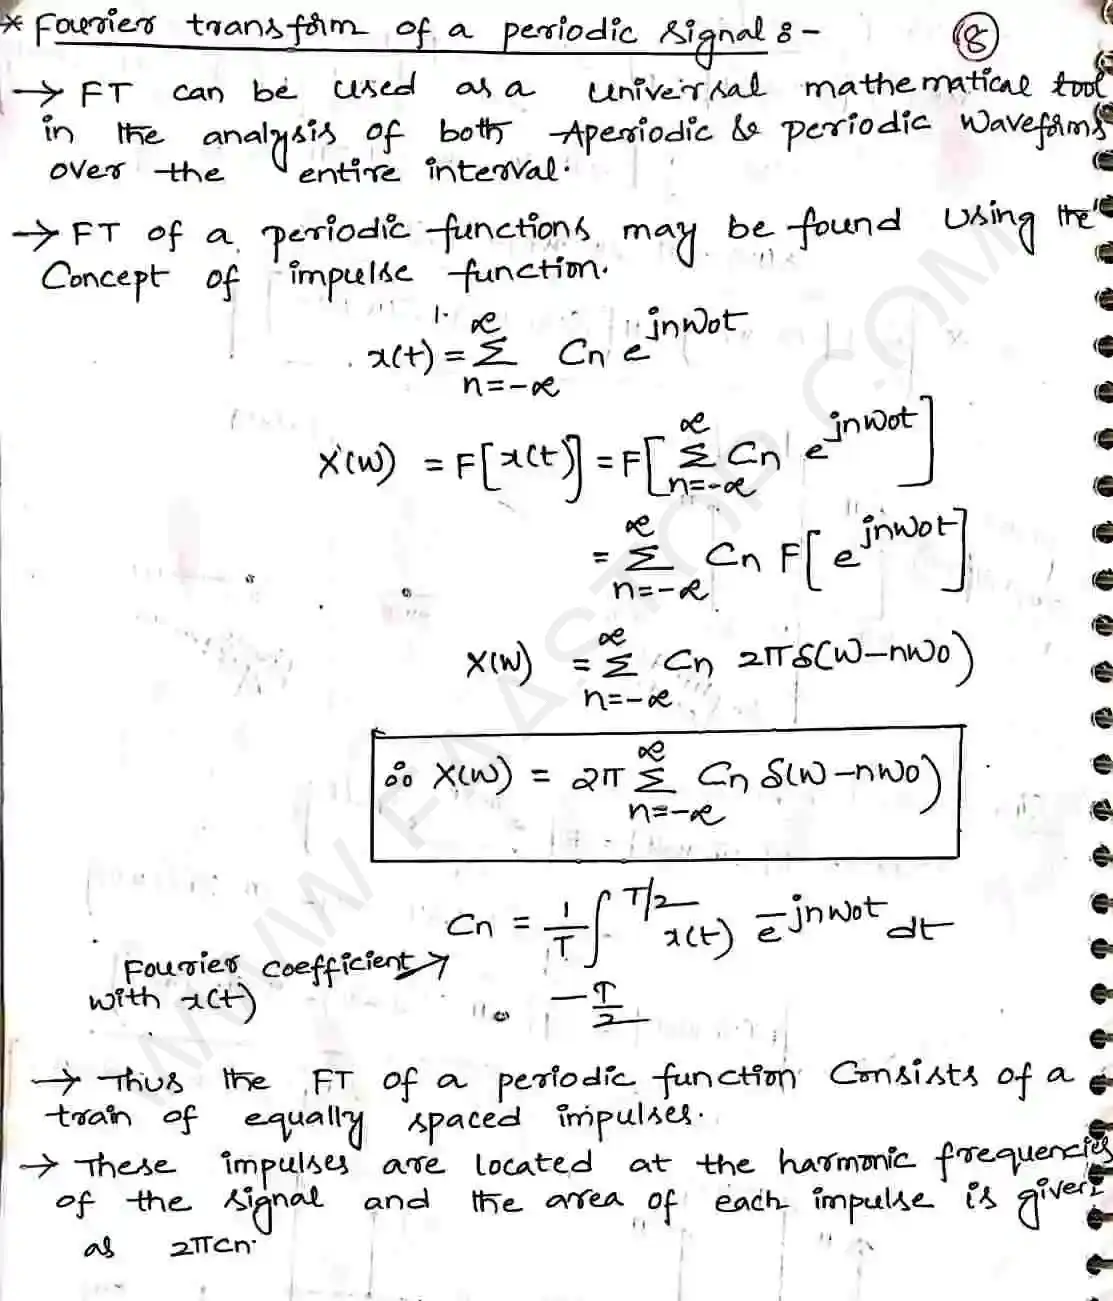 * Fourier transform of a periodic signal :-
(8)
→ FT can be used as a universal mathematical tool
in the analysis of both Aperiodic & periodic waveforms
over the entire interval.
→ FT of a periodic functions may be found using the
Concept of impulse function.
x(t) = ∑_{n=-∞}^{∞} Cn e^{jnω0t}
X(ω) = F[x(t)] = F[∑_{n=-∞}^{∞} Cn e^{jnω0t}]
= ∑_{n=-∞}^{∞} Cn F[e^{jnω0t}]
X(ω) = ∑_{n=-∞}^{∞} Cn 2π δ(ω-nω0)
∴ X(ω) = 2π ∑_{n=-∞}^{∞} Cn δ(ω-nω0)
Cn = 1/T ∫_{-T/2}^{T/2} x(t) e^{-jnω0t} dt
Fourier coefficient →
with x(t)
→ Thus the FT of a periodic function Consists of a
train of equally spaced impulses.
→ These impulses are located at the harmonic frequencies
of the signal and the area of each impulse is given
as 2πCn.
WWW.FAASTOP.COM